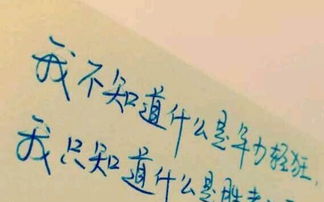 我不知道什么是年少轻狂,
我只知道什么是胜者